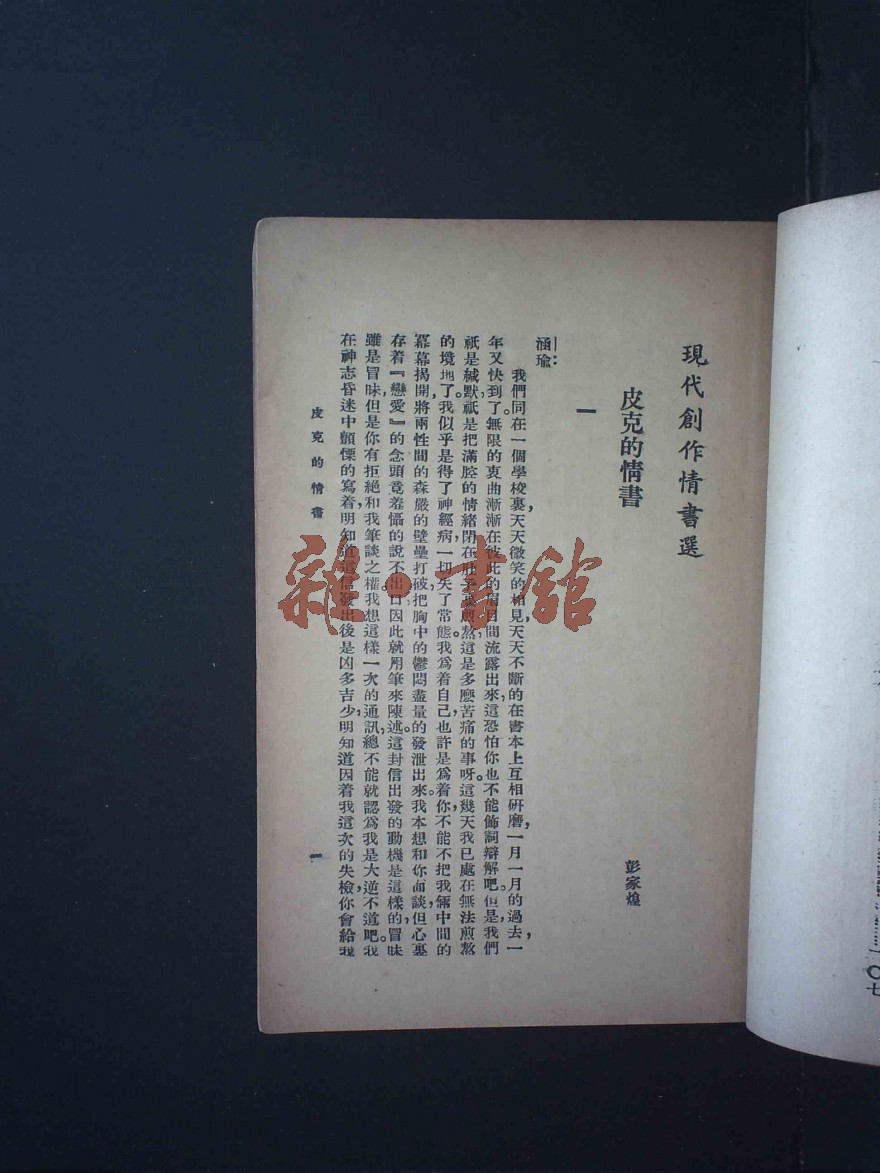 現代創作情書選
皮克的情書
彭家煌
一
涵瑜：
我們同在一個學校裏，天天微笑的相見，天天不斷的在書本上互相研磨，一月一月的過去，一
年又快到了。無限的衷曲漸漸在彼此的眉目間流露出來，這恐怕你也不能飾詞辯解吧。但是，我們
祇是緘默，祇是把滿腔的情緒閉在肚子裏煎熬，這是多麽苦痛的事呀。這幾天我已處在無法煎熬
的境地了。我似乎是得了神經病，一切失了常態。我爲着自己，也許是爲着你，不能不把我倆中間的
冪幕揭開，將兩性間的森嚴的壁壘打破，把胸中的鬱悶盡量的發泄出來。我本想和你面談，但心裏
存着『戀愛』的念頭，竟羞懾的說不出口，因此就用筆來陳述。這封信出發的動機是這樣的，冒昧
雖是冒昧，但是你有拒絕和我筆談之權。我想這樣一次的通訊，總不能就認爲我是大逆不道吧。我
在神志昏迷中顫慄的寫着，明知道這信發出後是凶多吉少，明知道因着我這次的失檢，你會給我
皮克的情書
一
雜·書館
〇七